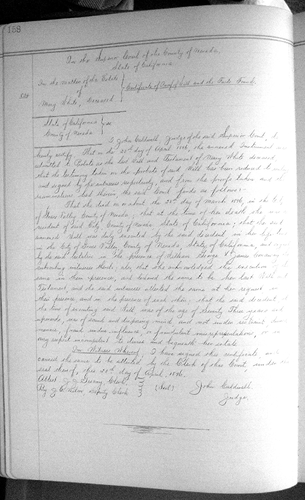 158
In the Superior Court of the County of Nevada,
State of California
In the matter of the Estate
of
Mary White, Deceased
Certificate of Proof of Will and the Facts Found.
State of California
County of Nevada } ss
I, John Caldwell, Judge of the said Superior Court, do
hereby certify: That on the day of April 1896, the annexed Instrument was
admitted to Probate as the last Will and Testament of Mary White deceased
that the testimony taken on the probate of said Will has been reduced to
and signed by the witnesses respectively, and from the proofs taken and the
said Court finds as follows:
That she died on or about the day of March 1896, in the City
of Grass Valley County of Nevada; that at the time of her death she was
resident of said City, County of Nevada, State of California; that the said
annexed Will was duly executed by the said decedent in her lifetime
in the City of Grass Valley, County of Nevada, State of California, and signed
by the said testatrix in the presence of William George
subscribing witnesses thereto; also that she acknowledged the execution of the
same in their presence, and declared the same to be her last Will and
Testament, and the said witnesses attested the same at her request in
her presence, and in the presence of each other; that the said decedent at
the time of executing said Will was of the age of Seventy Three years and
upwards, was of sound and disposing mind, and not under restraint
undue influence, or fraudulent misrepresentations, nor in
any respect incompetent to devise and bequeath her estate.
In Witness Whereof, I have signed this certificate and
caused the same to be attested by the Clerk of this Court, under the
seal thereof, this day of April, 1896.
Attest Clerk
By Deputy Clerk
(Seal)
John Caldwell
Judge.